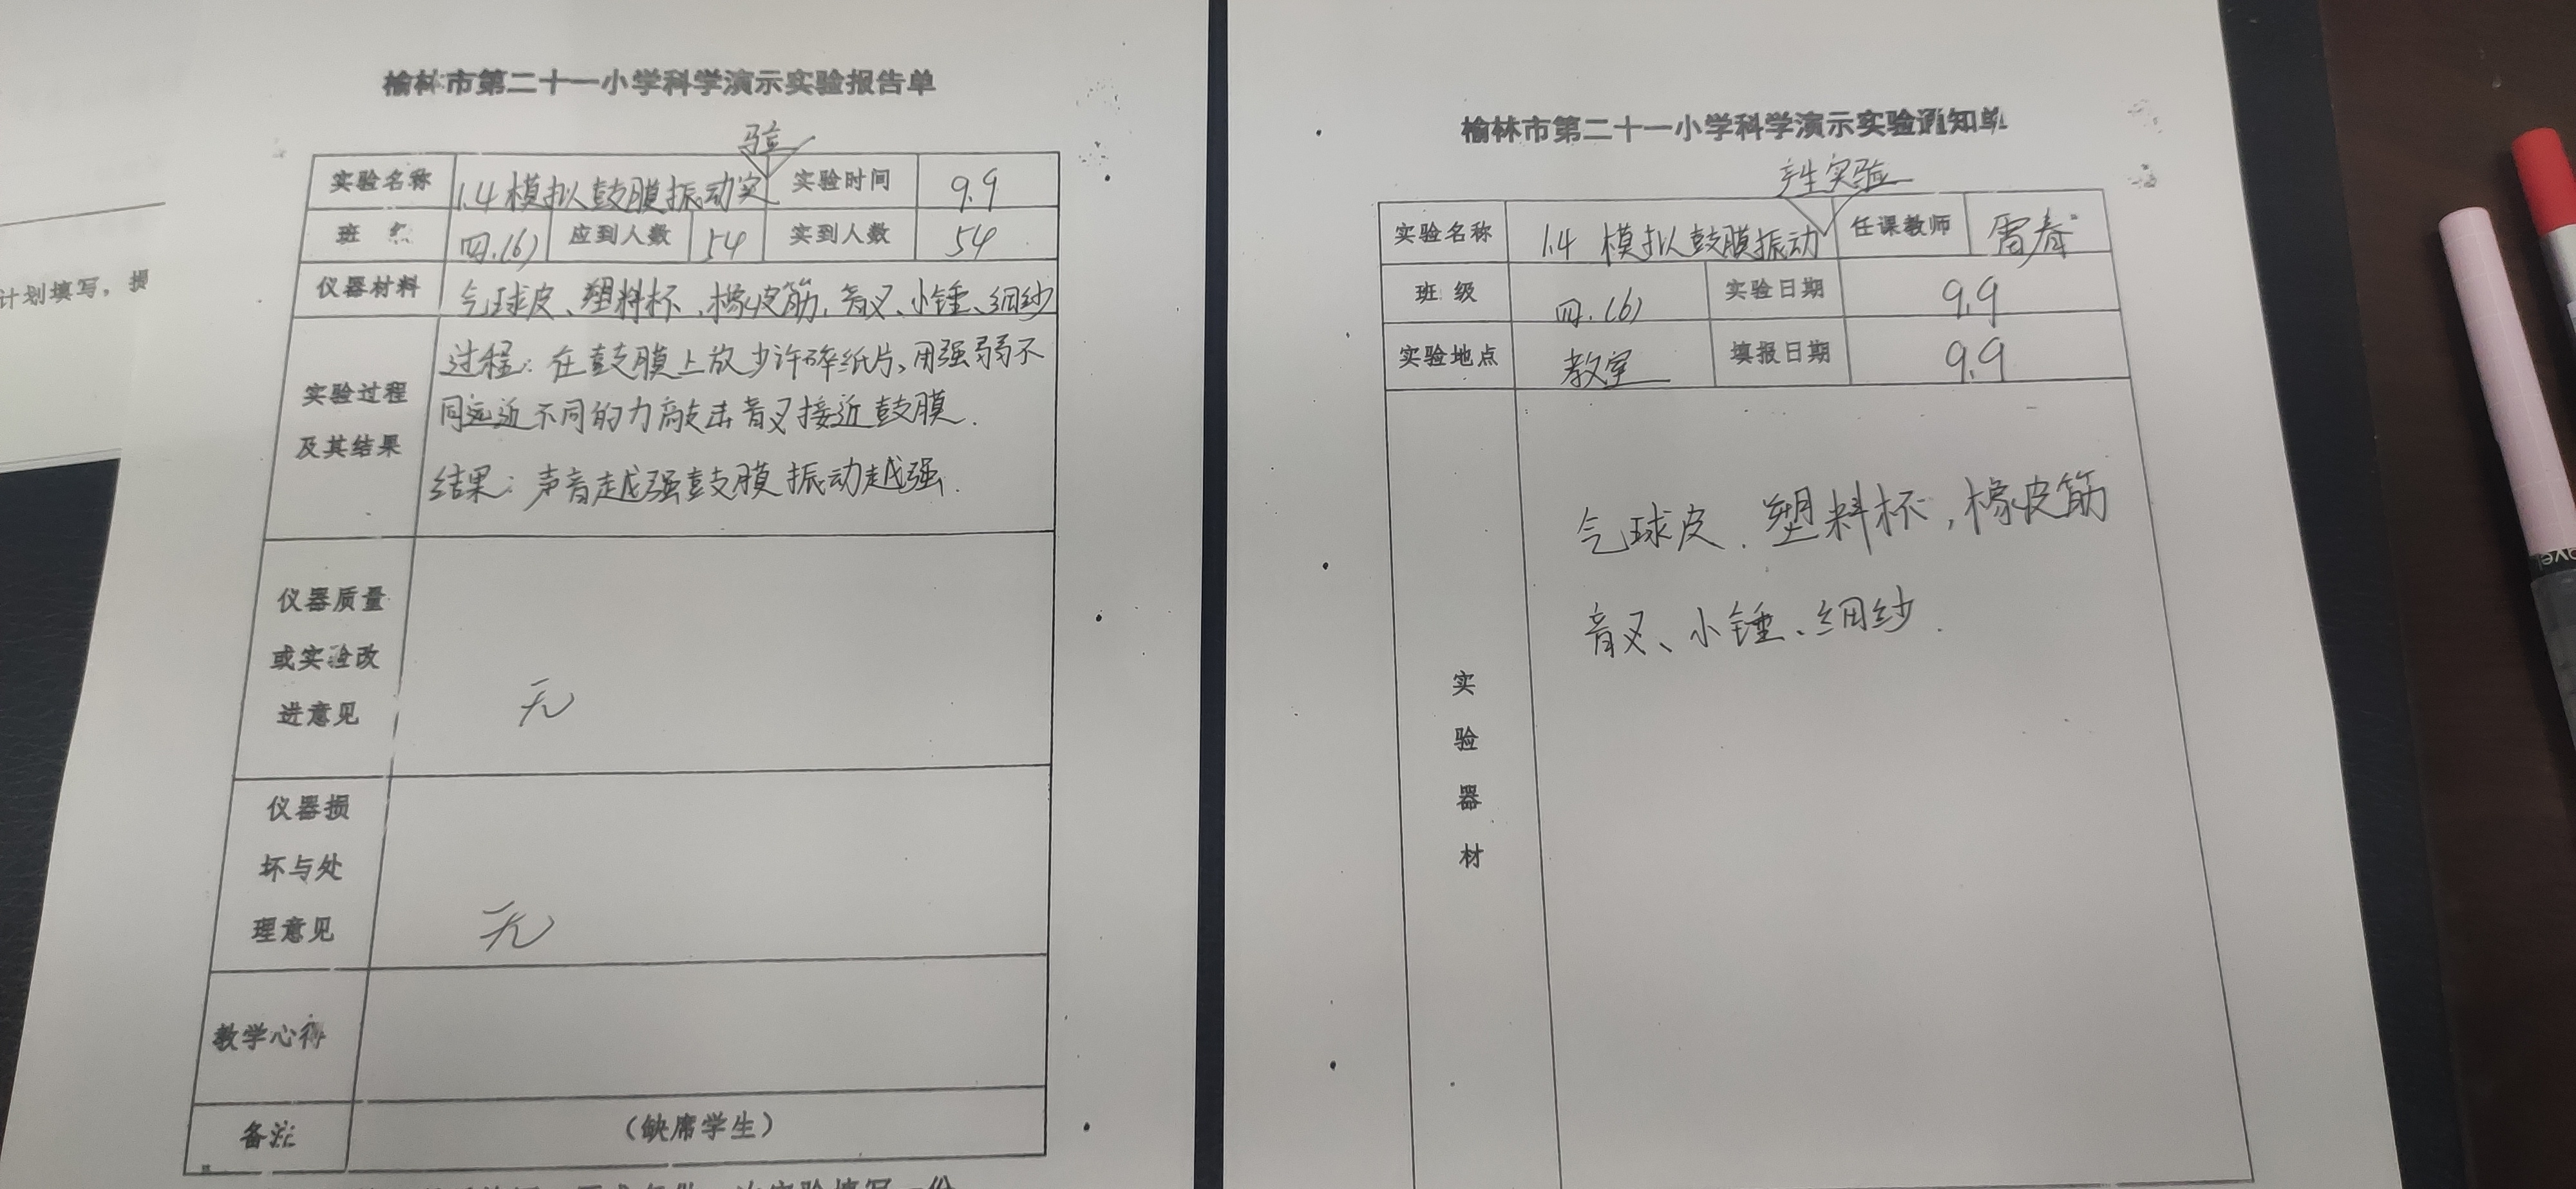 计划填写，损
榆林市第二十一小学科学演示实验报告单
验
实验名称 1.4 模拟鼓膜振动实 实验时间 9.9
班 级 四.(6) 应到人数 54 实到人数 54
仪器材料 气球皮、塑料杯、橡皮筋、音叉、小锤、细纱
过程：在鼓膜上放少许碎纸片，用强弱不
实验过程
同远近不同的力敲击音叉接近鼓膜.
及其结果
结果：声音越强鼓膜振动越强.
仪器质量
或实验改
进意见
无
仪器损
坏与处
理意见
无
教学心得
备注 （缺席学生）
榆林市第二十一小学科学演示实验通知单
产生实验
实验名称 1.4 模拟鼓膜振动 任课教师
班 级 四.(6) 实验日期 9.9
实验地点 教室 填报日期 9.9
气球皮、塑料杯，橡皮筋
音叉、小锤、细纱.
实
验
器
材